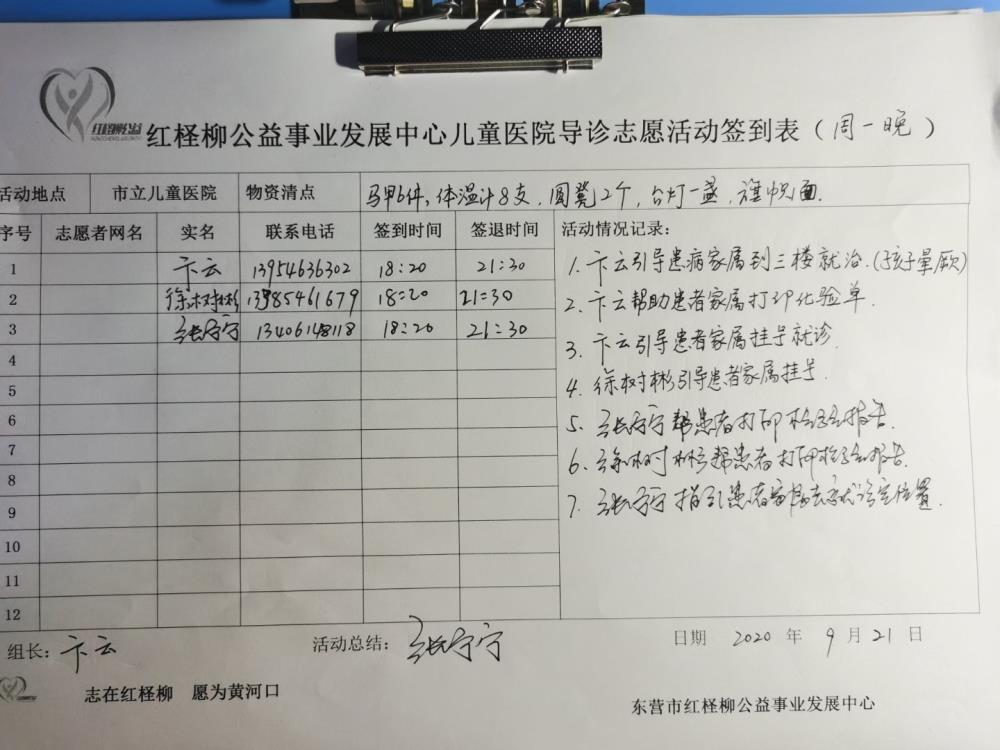 红柽柳公益
红柽柳公益事业发展中心儿童医院导诊志愿活动签到表（周一晚）
活动地点 市立儿童医院 物资清点 马甲6件，体温计8支，圆凳2个，台灯一盏，旗帜一面.
序号 志愿者网名 实名 联系电话 签到时间 签退时间 活动情况记录：
1 卞云 13954636302 18:20 21:30
2 徐树彬 13985461679 18:20 21:30
3 张宁宁 13406148118 18:20 21:30
4
5
6
7
8
9
10
11
12
1. 卞云引导患病家属到三楼就治.(孩子晕厥)
2. 卞云帮助患者家属打印化验单.
3. 卞云引导患者家属挂号就诊
4. 徐树彬引导患者家属挂号.
5. 张宁宁帮患者打印检验报告.
6. 徐树彬帮患者打印检验报告.
7. 张宁宁指引患者家属去就诊室位置.
组长：卞云 活动总结：张宁宁 日期 2020 年 9 月 21 日
志在红柽柳 愿为黄河口
东营市红柽柳公益事业发展中心